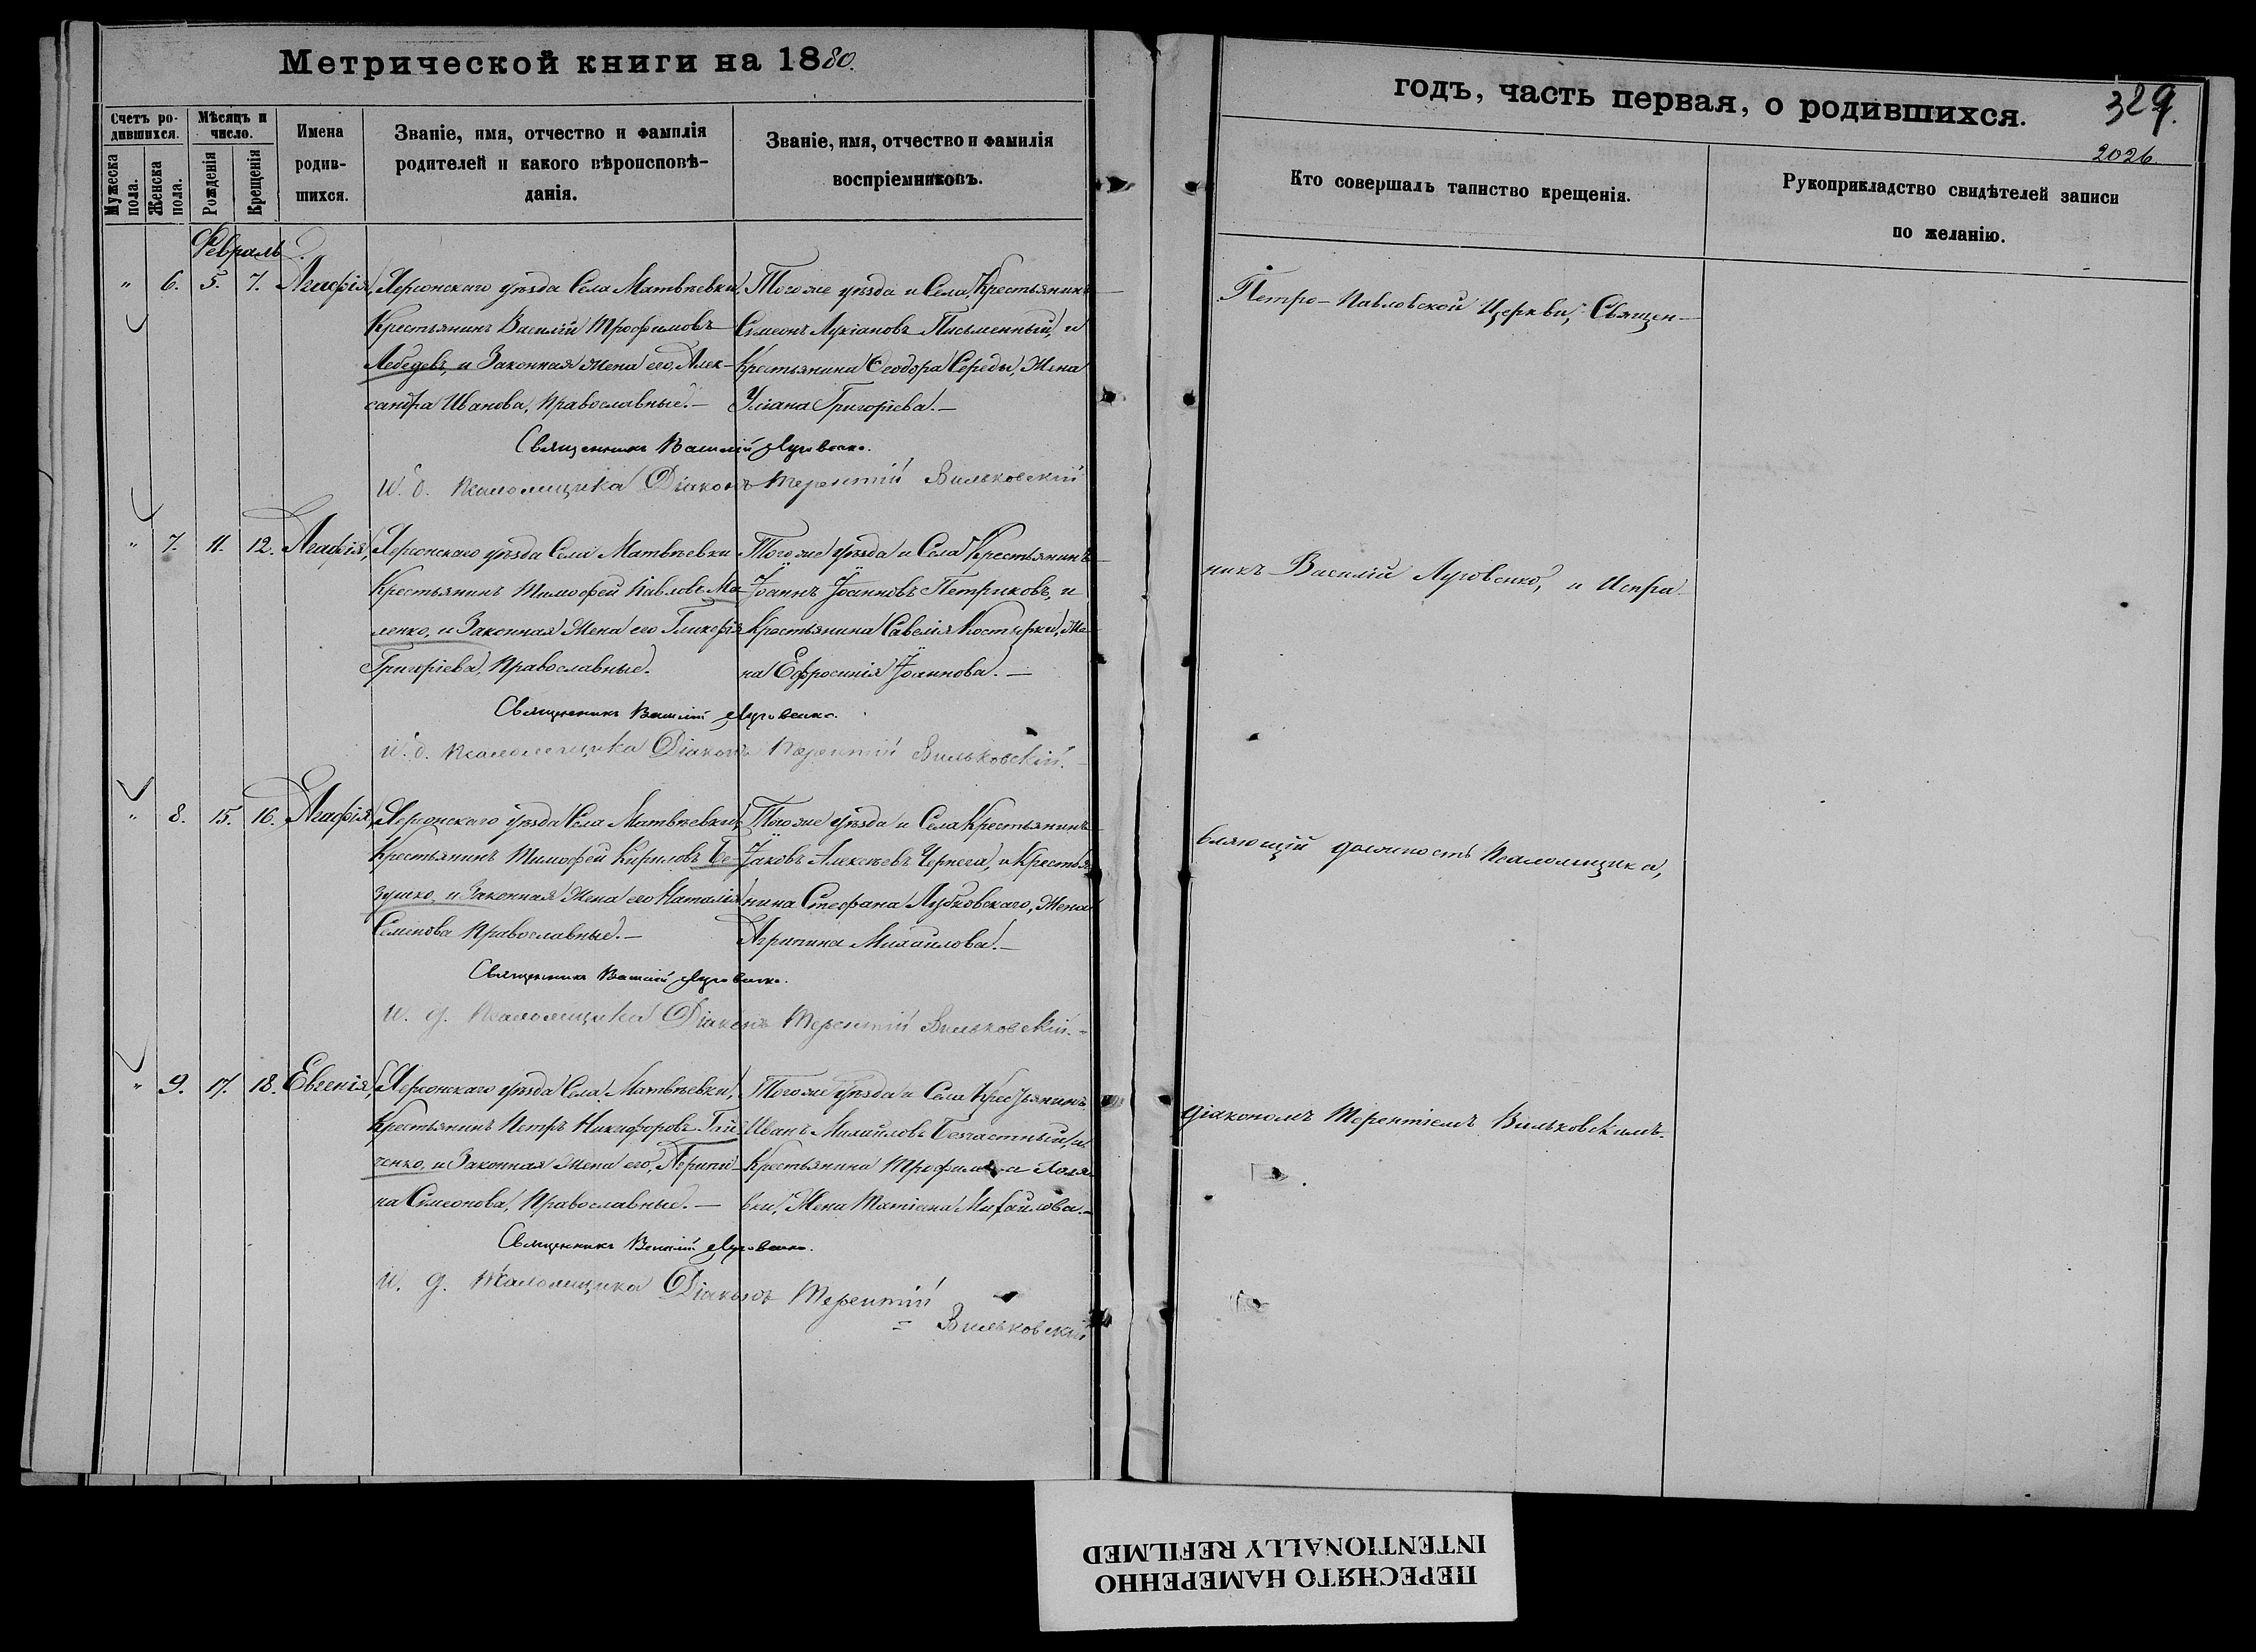 Метрической книги на 1880.
Счетъ ро-
дившихся.
Мужеска
пола.
Женска
пола.
Мѣсяцъ и
число.
Рожденія
Крещенія
Имена
родив-
шихся.
Званіе, имя, отчество и фамилія
родителей и какого вѣроисповѣ-
данія.
Званіе, имя, отчество и фамилія
воспріемниковъ.
Февраль
" 6. 5. 7. Агафія,
Херсонскаго уѣзда Села Матвѣевки,
Крестьянинъ Василій Трофимовъ
Лебедевъ, и Законная Жена его, Алек-
сандра Иванова, Православные.—
Тогоже уѣзда и Села, Крестьянинъ
Симеонъ Лукіановъ Письменный, и
Крестьянина Ѳеодора Середы, Жена
Уліана Григоріева.—
Священникъ Василій Луговенко.
И. д. Псаломщика Діаконъ Терентій Вильковскій
" 7. 11. 12. Агафія,
Херсонскаго уѣзда Села Матвѣевки
Крестьянинъ Тимофей Павловъ Ма-
ленко, и Законная Жена его Гликерія
Григоріева, Православные.
Тогоже уѣзда и Села Крестьянинъ
Іоаннъ Іоанновъ Петриковъ, и
Крестьянина Савелія Костырки, Же-
на Ефросинія Іоаннова.—
Священникъ Василій Луговенко.
И. д. Псаломщика Діаконъ Терентій Вильковскій.
" 8. 15. 16. Агафія,
Херсонскаго уѣзда Села Матвѣевки,
Крестьянинъ Тимофей Кириловъ Бе-
зушко, и Законная Жена его Наталія
Семенова Православные.—
Тогоже уѣзда и Села Крестьянинъ
Іаковъ Алексѣевъ Чернега, и Крестья-
нина Стефана Лубковскаго, Жена
Агрипина Михаилова.—
Священникъ Василій Луговенко.
И. д. Псаломщика Діаконъ Терентій Вильковскій.
" 9. 17. 18. Евгенія,
Херсонскаго уѣзда Села Матвѣевки,
Крестьянинъ Петръ Никифоровъ
ченко, и Законная Жена его, Агрипи-
на Симеонова, Православные.—
Тогоже уѣзда и Села Крестьянинъ
Иванъ Михаиловъ Безчастный, и
Крестьянина Трофима
вки, Жена Татіана Михаилова.—
Священникъ Василій Луговенко.
И. д. Псаломщика Діаконъ Терентій
Вильковскій
годъ, часть первая, о родившихся.
329.
2026.
Кто совершалъ таинство крещенія.
Рукоприкладство свидѣтелей записи
по желанію.
Петро-Павловской Церкви, Священ-
никъ Василій Луговенко, и Испра-
вляющій должность Псаломщика,
діакономъ Терентіемъ Вильковскимъ.
ПЕРЕСНЯТО НАМЕРЕННО
INTENTIONALLY REFILMED